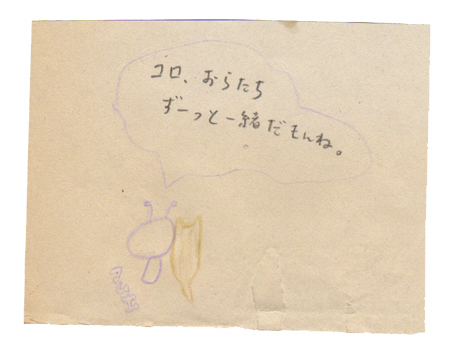 コロ、おらたち
ずーっと一緒だもんね。